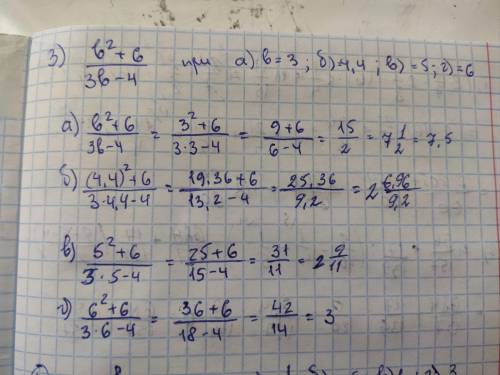 3) (b²+6)/(3b-4) при а) b=3; б) 4,4; в) =5; г) =6
а) (b²+6)/(3b-4) = (3²+6)/(3·3-4) = (9+6)/(6-4) = 15/2 = 7 1/2 = 7,5
б) ((4,4)²+6)/(3·4,4-4) = (19,36+6)/(13,2-4) = 25,36/9,2 = 2 6,96/9,2
в) (5²+6)/(3·5-4) = (25+6)/(15-4) = 31/11 = 2 9/11
г) (6²+6)/(3·6-4) = (36+6)/(18-4) = 42/14 = 3